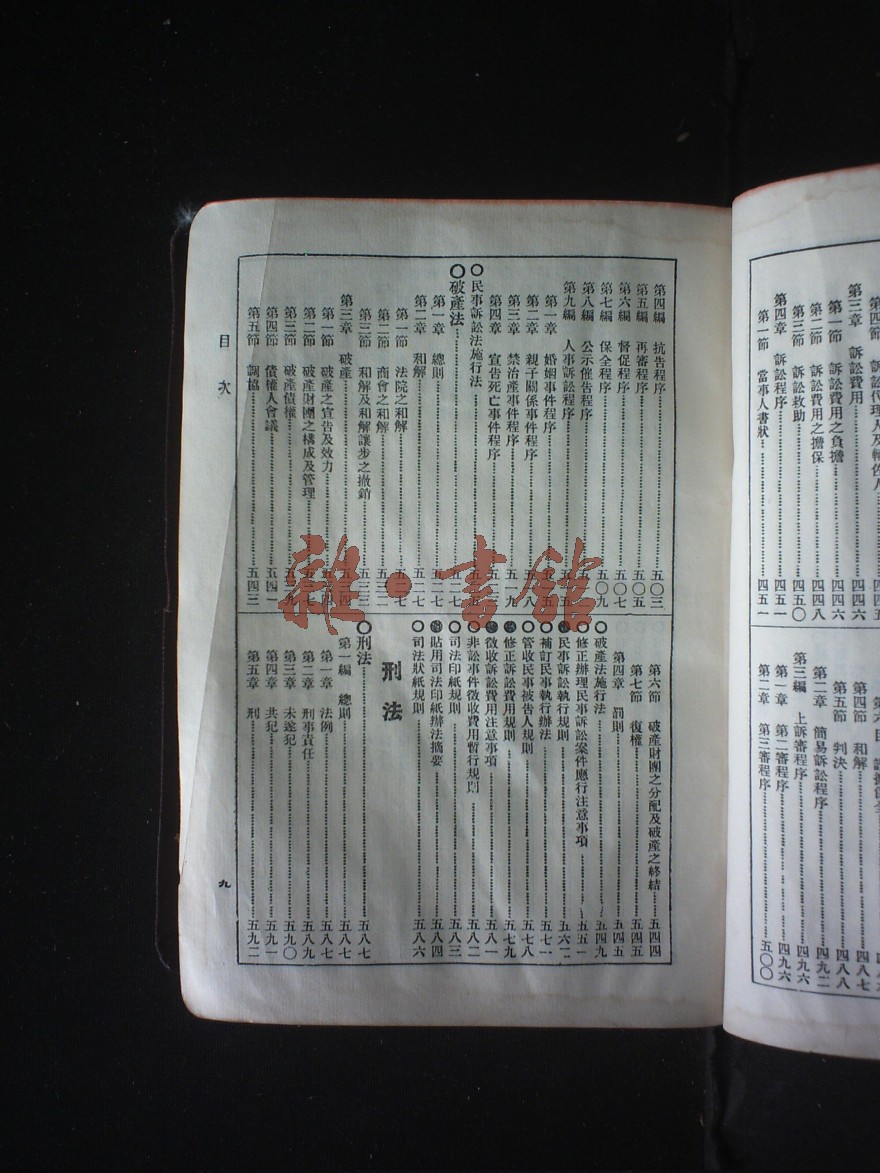 第三章 訴訟費用……四四六
第一節 訴訟費用之負擔……四四六
第二節 訴訟費用之擔保……四四八
第三節 訴訟救助……四五〇
第四章 訴訟程序……四五一
第一節 當事人書狀……四五一
第四節 和解……四八七
第五節 判決……四八八
第二章 簡易訴訟程序……四九二
第三編 上訴審程序……四九六
第一章 第二審程序……四九六
第二章 第三審程序……五〇〇
第四編 抗告程序……五〇三
第五編 再審程序……五〇五
第六編 督促程序……五〇七
第七編 保全程序……五〇九
第八編 公示催告程序
第九編 人事訴訟程序
第一章 婚姻事件程序
第二章 親子關係事件程序……五一八
第三章 禁治產事件程序……五一九
第四章 宣告死亡事件程序
〇民事訴訟法施行法
〇破產法……五二七
第一章 總則……五二七
第二章 和解……五二七
第一節 法院之和解……五二七
第二節 商會之和解……五三二
第三節 和解及和解讓步之撤銷……五三三
第三章 破產……五三四
第一節 破產之宣告及效力……五三四
第二節 破產財團之構成及管理……五三七
第三節 破產債權……五三九
第四節 債權人會議……五四一
第五節 調協……五四三
第六節 破產財團之分配及破產之終結……五四四
第七節 復權……五四五
第四章 罰則……五四五
〇破產法施行法……五四九
修正辦理民事訴訟案件應行注意事項……五五一
民事訴訟執行規則……五六二
補訂民事執行辦法……五七一
管收民事被告人規則……五七八
修正訴訟費用規則……五七九
徵收訴訟費用注意事項……五八一
非訟事件徵收費用暫行規則……五八二
〇司法印紙規則……五八三
貼用司法印紙辦法摘要……五八四
〇司法狀紙規則……五八六
刑法
〇刑法……五八七
第一編 總則……五八七
第一章 法例……五八七
第二章 刑事責任……五八九
第三章 未遂犯……五九〇
第四章 共犯……五九一
第五章 刑……五九二
目次
九
雜·書館